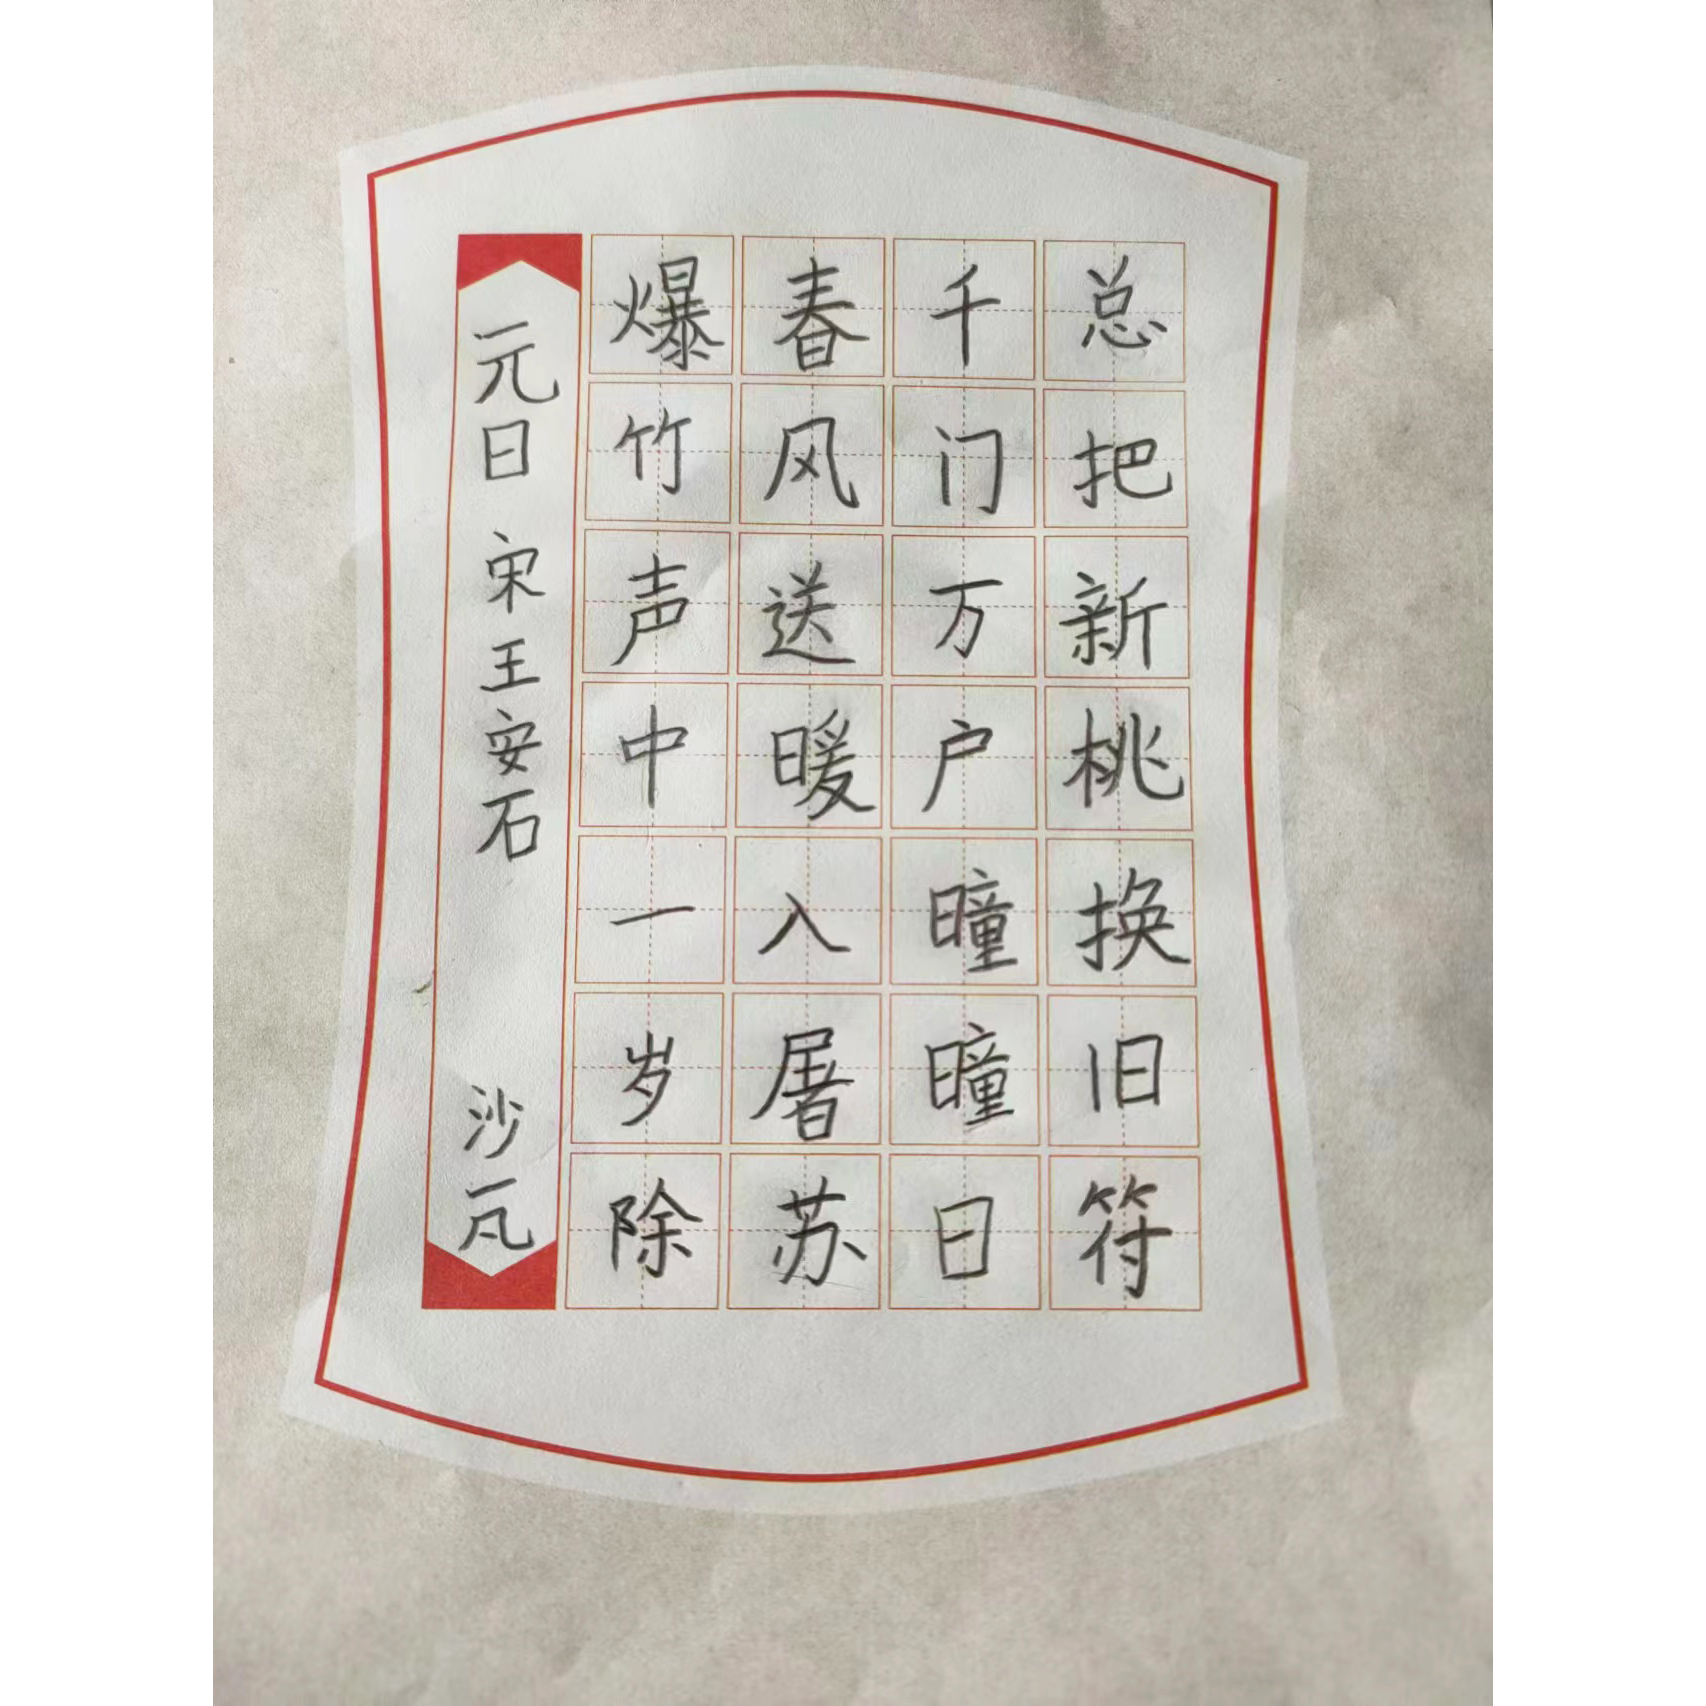 元日 宋 王安石 沙一凡
爆竹声中一岁除
春风送暖入屠苏
千门万户曈曈日
总把新桃换旧符